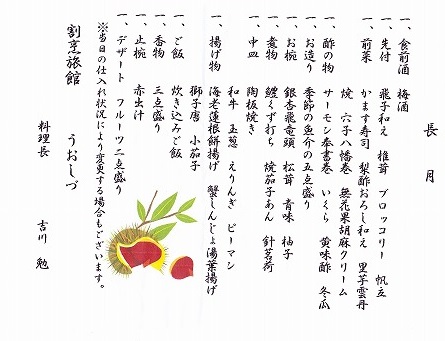 長月
一、食前酒 梅酒
一、先付 飛子和え 椎茸 ブロッコリー 帆立
一、前菜 かます寿司 梨酢おろし和え 里芋雲丹
焼 六子八幡巻 無花果胡麻クリーム
サーモン奉書巻 いくら 黄味酢 冬瓜
一、酢の物
一、お造り 季節の魚介の五点盛り
一、お椀 銀杏飛竜頭 松茸 青味 柚子
一、煮物 鱧くず打ち 焼茄子あん 針茗荷
一、中皿 陶板焼き
和牛 玉葱 えりんぎ ピーマン
一、揚げ物 海老蓮根餅揚げ 蟹しんじょ湯葉揚げ
獅子唐 小茄子
一、ご飯 炊き込みご飯
一、香物 三点盛り
一、止椀 赤出汁
一、デザート フルーツ二点盛り
※当日の仕入れ状況により変更する場合もございます。
割烹旅館 うおしづ
料理長 吉川 勉